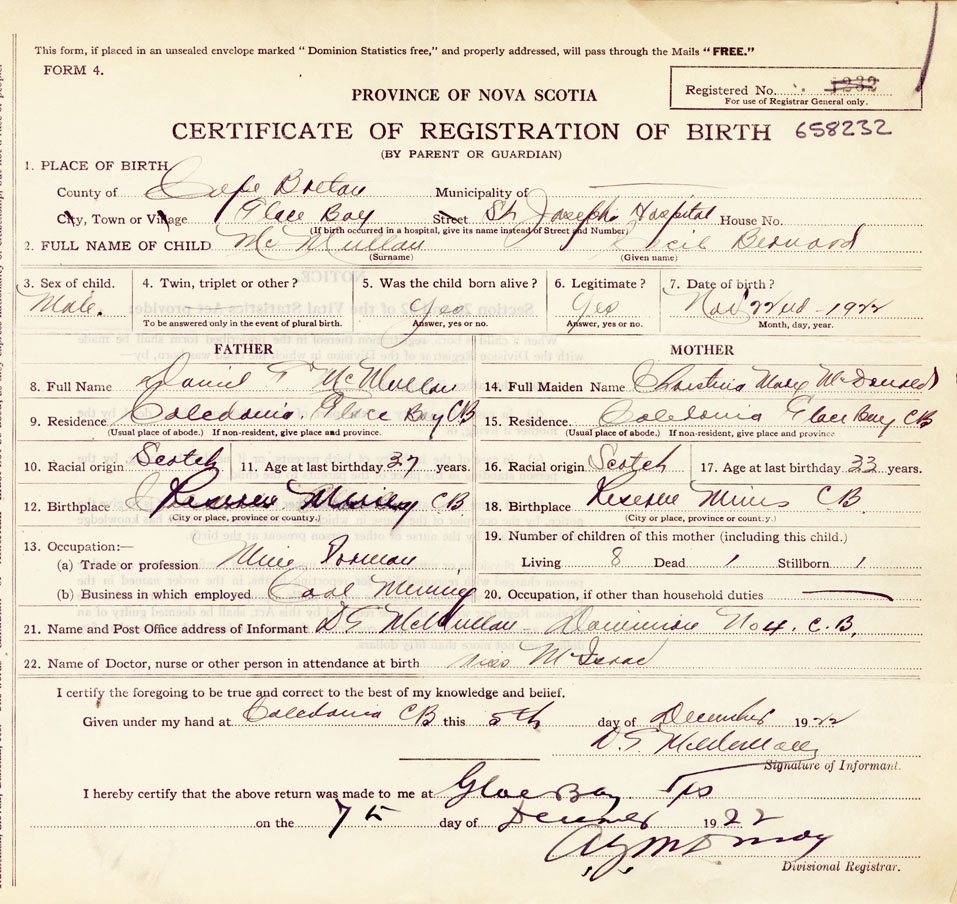 This form, if placed in an unsealed envelope marked "Dominion Statistics free," and properly addressed, will pass through the Mails "FREE."
FORM 4.
Registered No. 1232
For use of Registrar General only.
PROVINCE OF NOVA SCOTIA
CERTIFICATE OF REGISTRATION OF BIRTH 658232
(BY PARENT OR GUARDIAN)
1. PLACE OF BIRTH
County of Cape Breton Municipality of
City, Town or Village Glace Bay Street St Josephs Hospital House No.
(If birth occurred in a hospital, give its name instead of Street and Number)
2. FULL NAME OF CHILD McMullan Cecil Bernard
(Surname) (Given name)
3. Sex of child. 4. Twin, triplet or other? 5. Was the child born alive? 6. Legitimate? 7. Date of birth?
Male. Yes Yes Nov 22nd - 1922
To be answered only in the event of plural birth. Answer, yes or no. Answer, yes or no. Month, day, year.
FATHER MOTHER
8. Full Name Daniel F McMullan 14. Full Maiden Name Christina Mary McDonald
9. Residence Caledonia Glace Bay CB 15. Residence. Caledonia Glace Bay CB
(Usual place of abode.) If non-resident, give place and province. (Usual place of abode.) If non-resident, give place and province
10. Racial origin Scotch 11. Age at last birthday 37 years. 16. Racial origin Scotch 17. Age at last birthday 33 years.
12. Birthplace Reserve Mines CB 18. Birthplace Reserve Mines CB
(City or place, province or country.) (City or place, province or country.)
13. Occupation:— 19. Number of children of this mother (including this child.)
(a) Trade or profession Mine Forman Living 8 Dead 1 Stillborn 1
(b) Business in which employed Coal Mining 20. Occupation, if other than household duties
21. Name and Post Office address of Informant D F McMullan Dominion No 4. C.B.
22. Name of Doctor, nurse or other person in attendance at birth Miss McIsaac
I certify the foregoing to be true and correct to the best of my knowledge and belief.
Given under my hand at Caledonia CB this 5th day of December 1922
D. F McMullan
Signature of Informant.
I hereby certify that the above return was made to me at Glace Bay NS
on the 7th day of December 1922
Divisional Registrar.